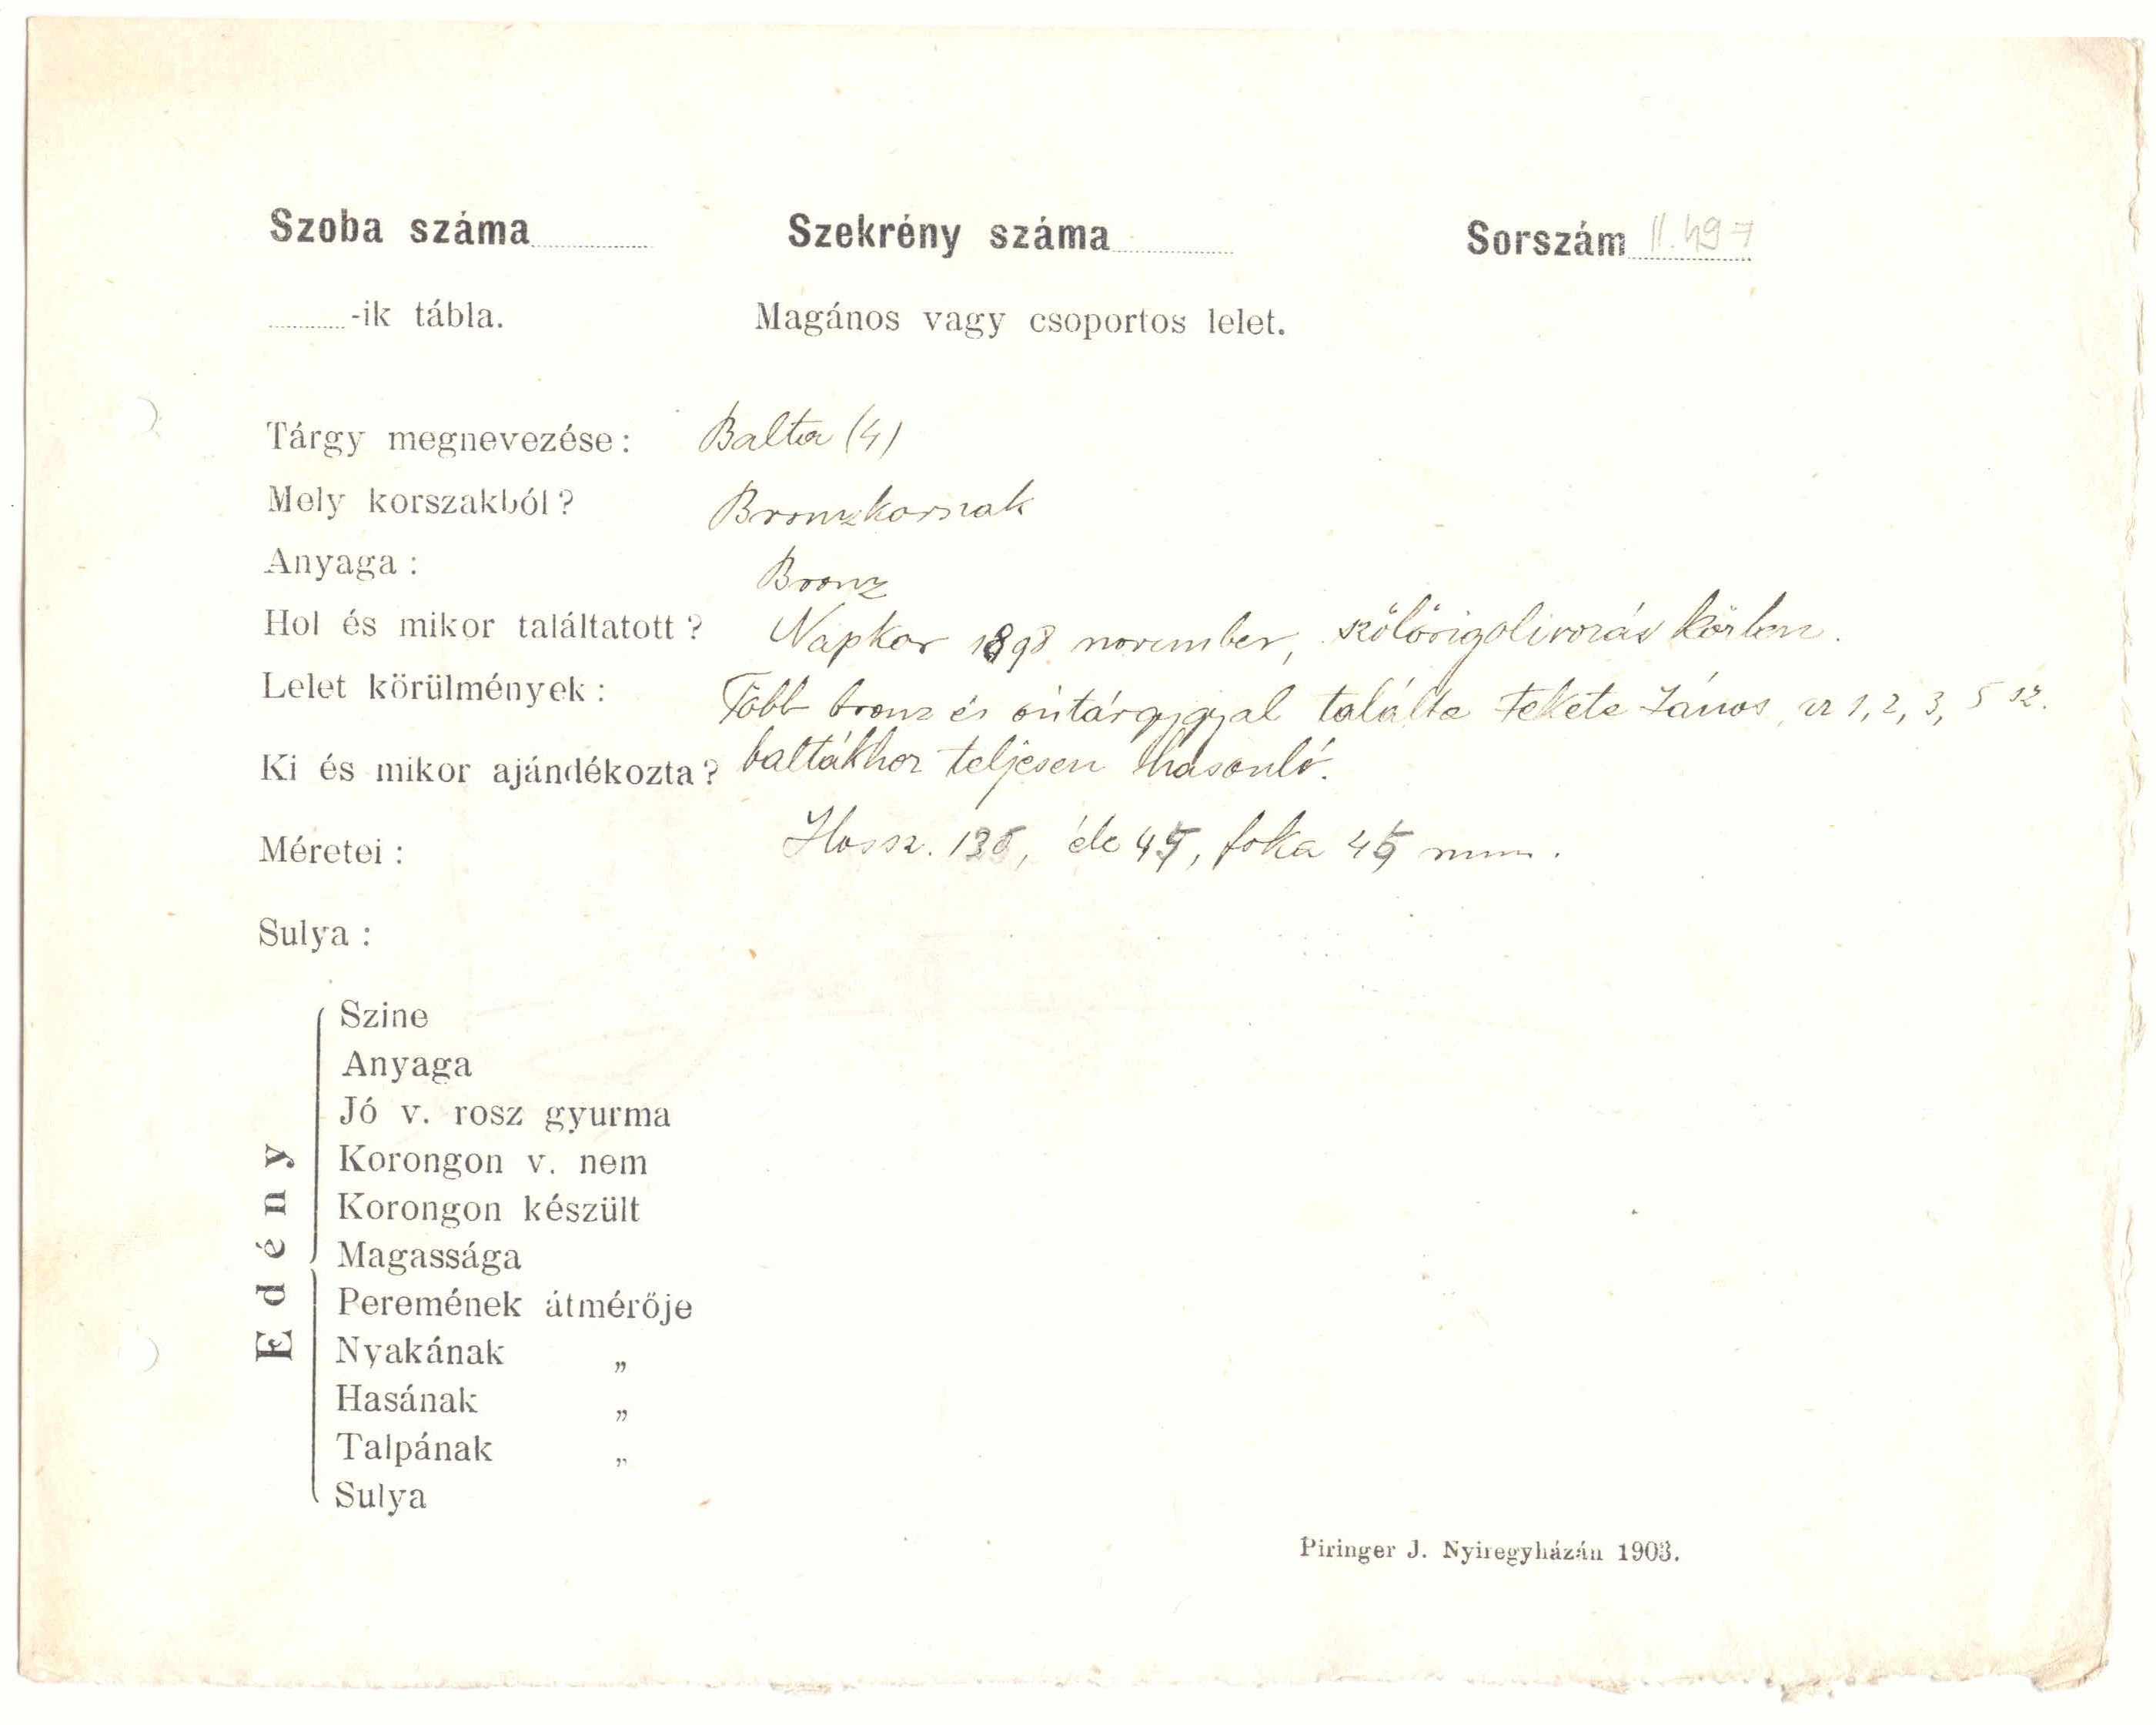 Szoba száma Szekrény száma Sorszám II.497
-ik tábla. Magános vagy csoportos lelet.
Tárgy megnevezése: Balta (4)
Mely korszakból? Bronzkorszak
Anyaga: Bronz
Hol és mikor találtatott? Napkor 1898 november, közben.
Lelet körülmények: Több bronz és tárggyal találta Fekete János, az 1, 2, 3, 5 sz.
Ki és mikor ajándékozta? baltákhoz teljesen hasonló.
Méretei: Hossz. éle 45, foka 45 mm.
Sulya:
Edény
Szine
Anyaga
Jó v. rosz gyurma
Korongon v. nem
Korongon készült
Magassága
Peremének átmérője
Nyakának „
Hasának „
Talpának „
Sulya
Piringer J. Nyiregyházán 1903.